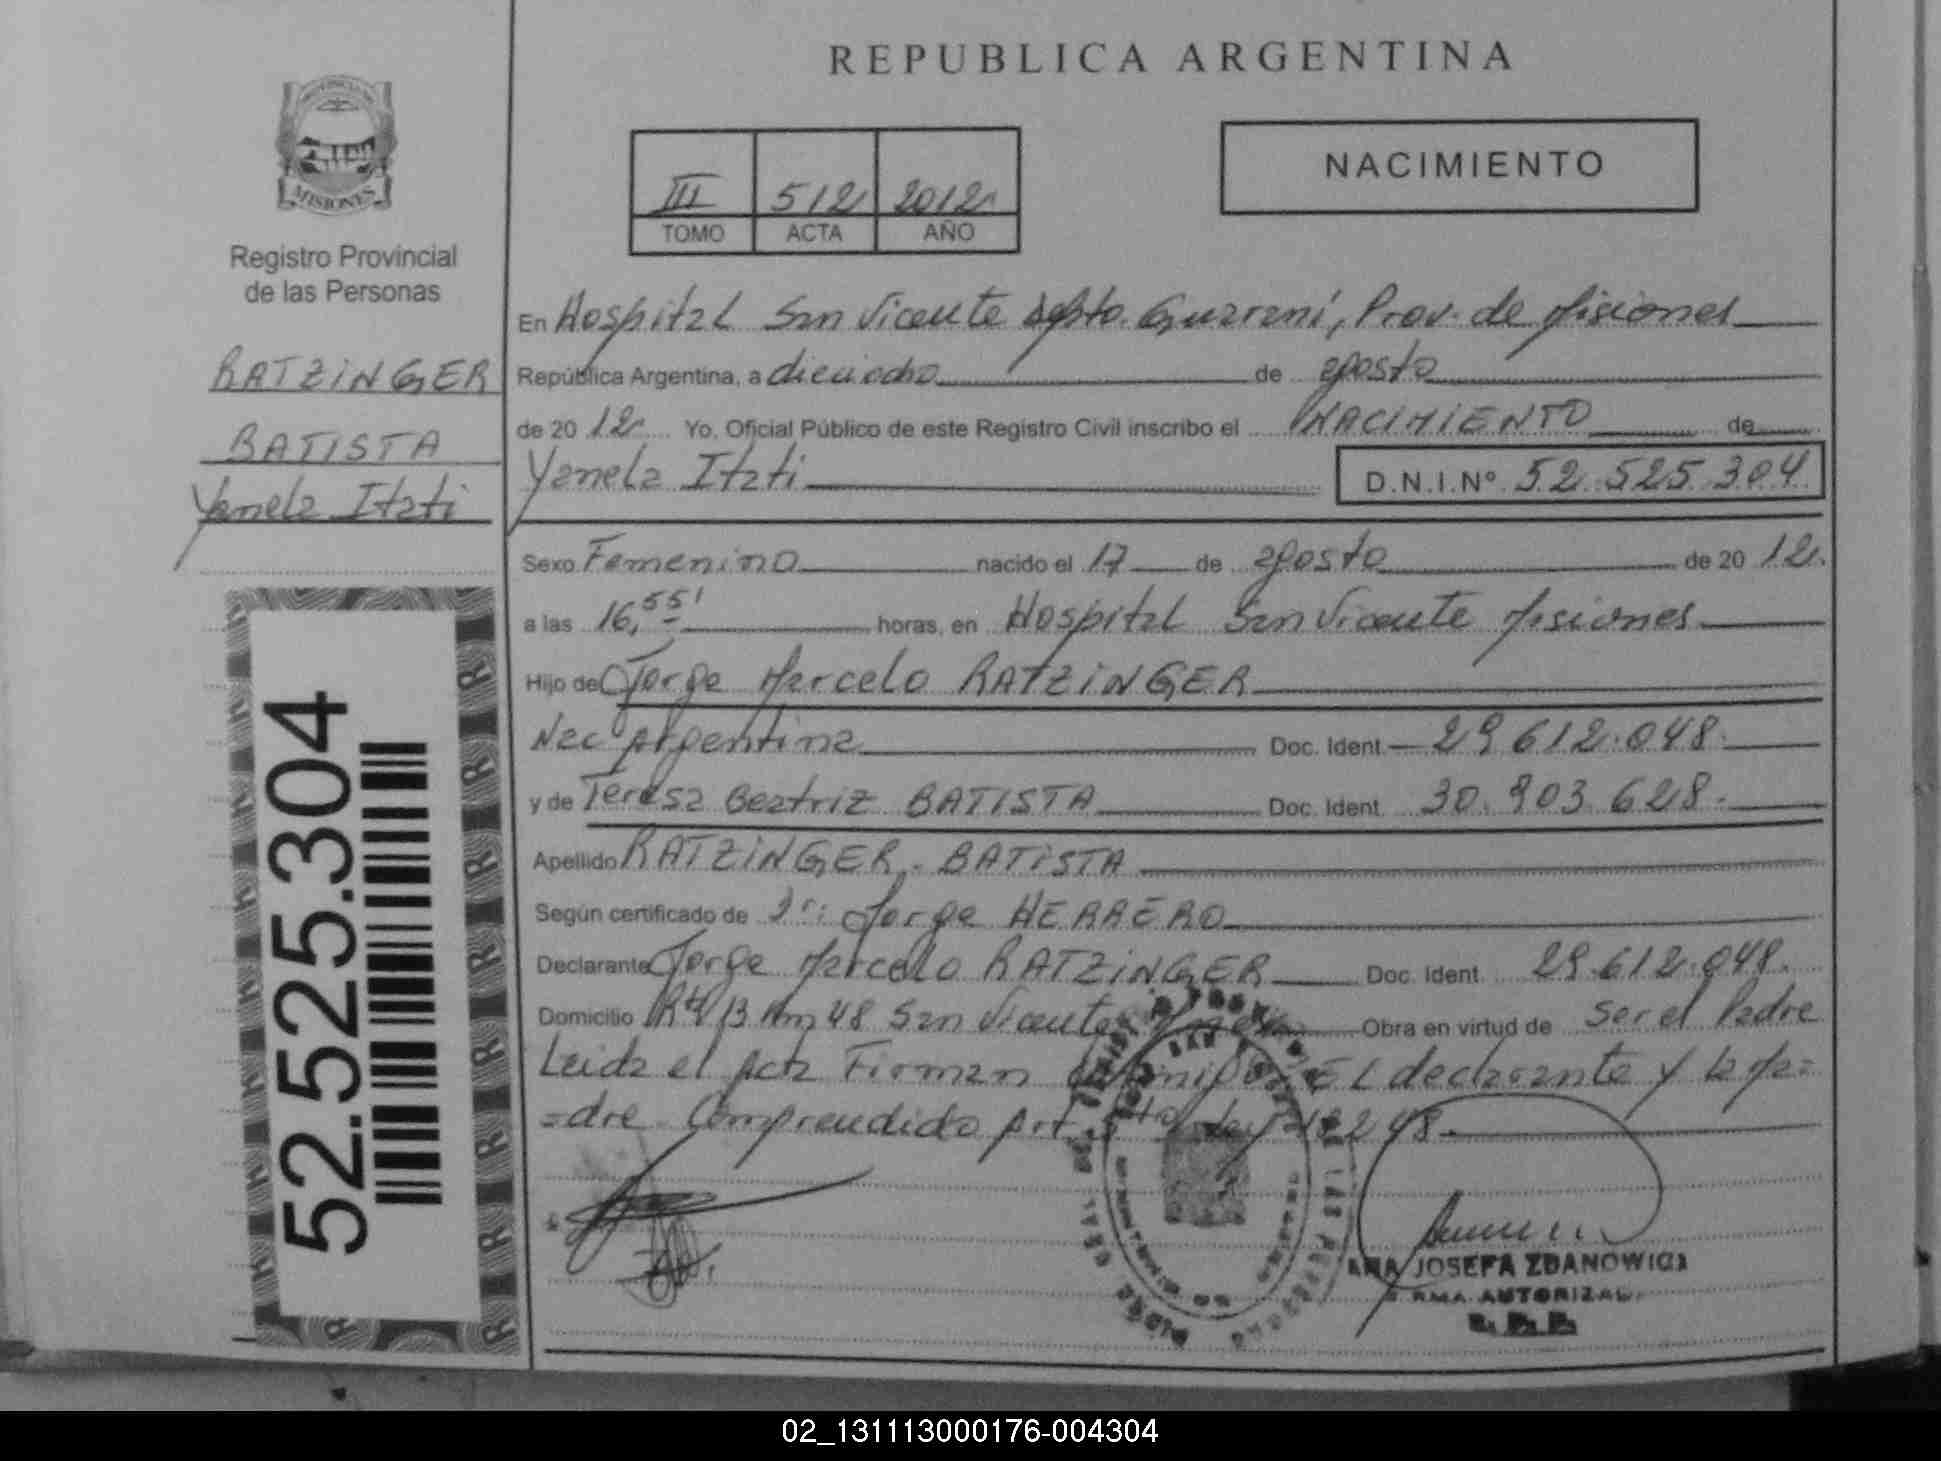 REPUBLICA ARGENTINA
MISIONES
Registro Provincial
de las Personas
III 512 2012
TOMO ACTA AÑO
NACIMIENTO
RATZINGER
BATISTA
Yanela Itati
52.525.304
En Hospital San Vicente Dpto. Guarani, Prov. de Misiones
República Argentina, a dieciocho de agosto
de 20 12 Yo, Oficial Público de este Registro Civil inscribo el NACIMIENTO de
Yanela Itati D.N.I.Nº 52.525.304
Sexo Femenino nacido el 17 de agosto de 20 12.
a las 16,55' horas, en Hospital San Vicente Misiones
Hijo de Jorge Marcelo RATZINGER
Nac Argentina Doc. Ident. 29.612.048.
y de Teresa Beatriz BATISTA Doc. Ident. 30.903.628.
Apellido RATZINGER - BATISTA
Según certificado de Dr: Jorge HERRERO
Declarante Jorge Marcelo RATZINGER Doc. Ident. 29.612.048.
Domicilio Rta 13 Km 48 San Vicente Obra en virtud de Ser el Padre
Leida el Acta Firman EL declarante y la Ma=
=dre. Comprendido Art. 5to Ley 18248.
ANA JOSEFA ZDANOWICZ
FIRMA AUTORIZADA
02_131113000176-004304